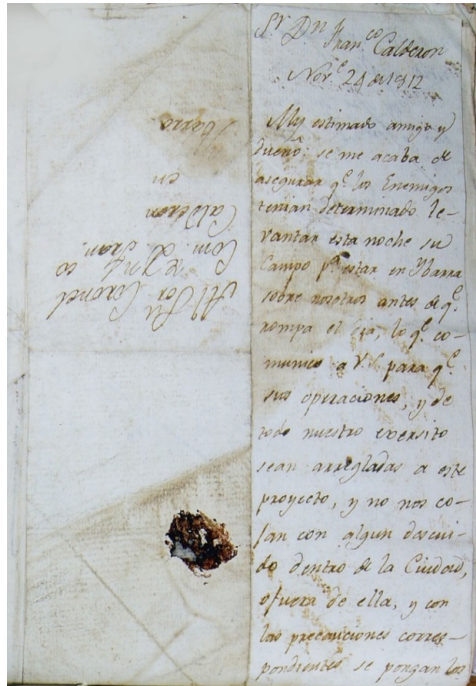 Sr. Dn. Franco. Calderon
Nove. 24 de 1812
Muy estimado amigo y
dueño: se me acaba de
asegurar qe. los Enemigos
tenian determinado le-
vantar esta noche su
Campo pa. estar en Ybarra
sobre nosotros antes de qe.
rompa el dia, lo qe. co-
munico a V.S. para qe.
sus operaciones, y de
todo nuestro exersito
sean arregladas a este
proyecto, y no nos co-
jan con algun descui-
do dentro de la Ciudad,
o fuera de ella, y con
las precauciones corres-
pondientes se pongan los
Al Sor. Coronel
Com. de Fran.co
Calderon
en
Ybarra